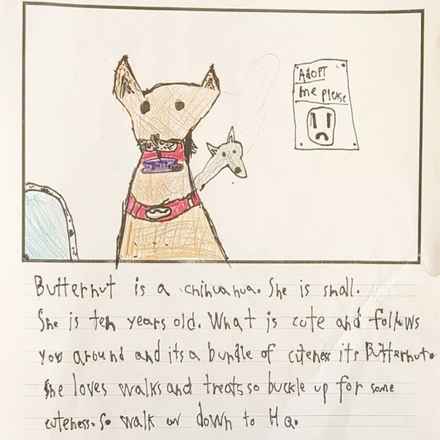 Adopt
me please
Butternut is a chihuahua. She is small.
She is ten years old. What is cute and follows
you around and its a bundle of cuteness its Butternut.
She loves walks and treats so buckle up for some
cuteness. So walk on down to Ha.